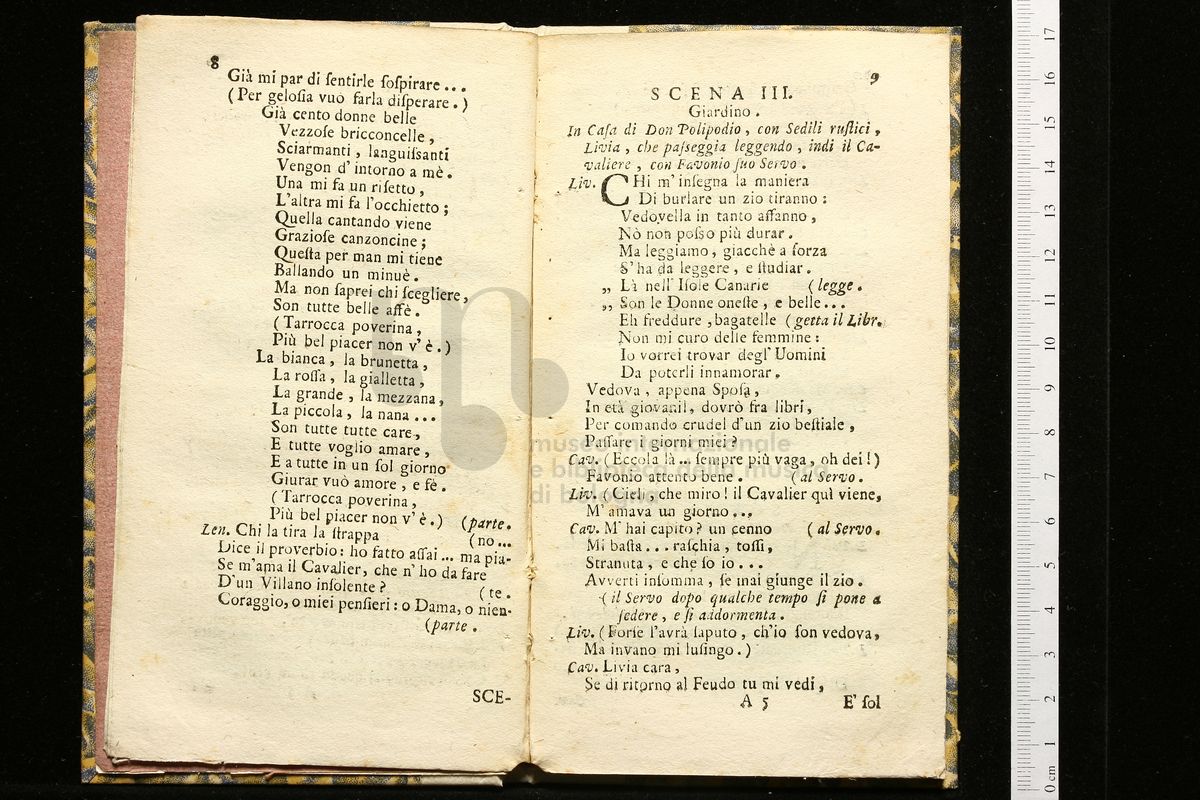 8
Già mi par di ſentirle ſoſpirare ...
(Per geloſia vuò farla diſperare.)
Già cento donne belle
Vezzoſe bricconcelle,
Sciarmanti, languiſſanti
Vengon d'intorno a mè.
Una mi fa un riſetto,
L'altra mi fa l'occhietto;
Quella cantando viene
Grazioſe canzoncine;
Queſta per man mi tiene
Ballando un minuè.
Ma non ſaprei chi ſcegliere,
Son tutte belle affè.
(Tarrocca poverina,
Più bel piacer non v'è.)
La bianca, la brunetta,
La roſſa, la gialletta,
La grande, la mezzana,
La piccola, la nana ...
Son tutte tutte care,
E tutte voglio amare,
E a tutte in un ſol giorno
Giurar vuò amore, e fè.
(Tarrocca poverina,
Più bel piacer non v'è.) (parte.
Len. Chi la tira la ſtrappa (no ...
Dice il proverbio: ho fatto aſſai ... ma pia-
Se m'ama il Cavalier, che n'ho da fare
D'un Villano inſolente? (te.
Coraggio, o miei penſieri: o Dama, o nien-
(parte.
SCE-
9
SCENA III.
Giardino.
In Caſa di Don Polipodio, con Sedili ruſtici,
Livia, che paſſeggia leggendo, indi il Ca-
valiere, con Favonio ſuo Servo.
Liv. CHi m'inſegna la maniera
Di burlare un zio tiranno:
Vedovella in tanto affanno,
Nò non poſſo più durar.
Ma leggiamo, giacchè a forza
S'ha da leggere, e ſtudiar.
„ Là nell' Iſole Canarie (legge.
„ Son le Donne oneſte, e belle ...
Eh freddure, bagatelle (getta il Libr.
Non mi curo delle femmine:
Io vorrei trovar degl' Uomini
Da poterli innamorar.
Vedova, appena Spoſa,
In età giovanil, dovrò fra libri,
Per comando crudel d'un zio beſtiale,
Paſſare i giorni miei?
Cav. (Eccola là ... ſempre più vaga, oh dei!)
Favonio attento bene. (al Servo.
Liv. (Cieli, che miro! il Cavalier quì viene,
M'amava un giorno ...
Cav. M'hai capito? un cenno (al Servo.
Mi baſta ... raſchia, toſſi,
Stranuta, e che ſo io ...
Avverti inſomma, ſe mai giunge il zio.
(il Servo dopo qualche tempo ſi pone a
ſedere, e ſi addormenta.
Liv. (Forſe l'avrà ſaputo, ch'io ſon vedova,
Ma invano mi luſingo.)
Cav. Livia cara,
Se di ritorno al Feudo tu mi vedi,
A 5 E' ſol